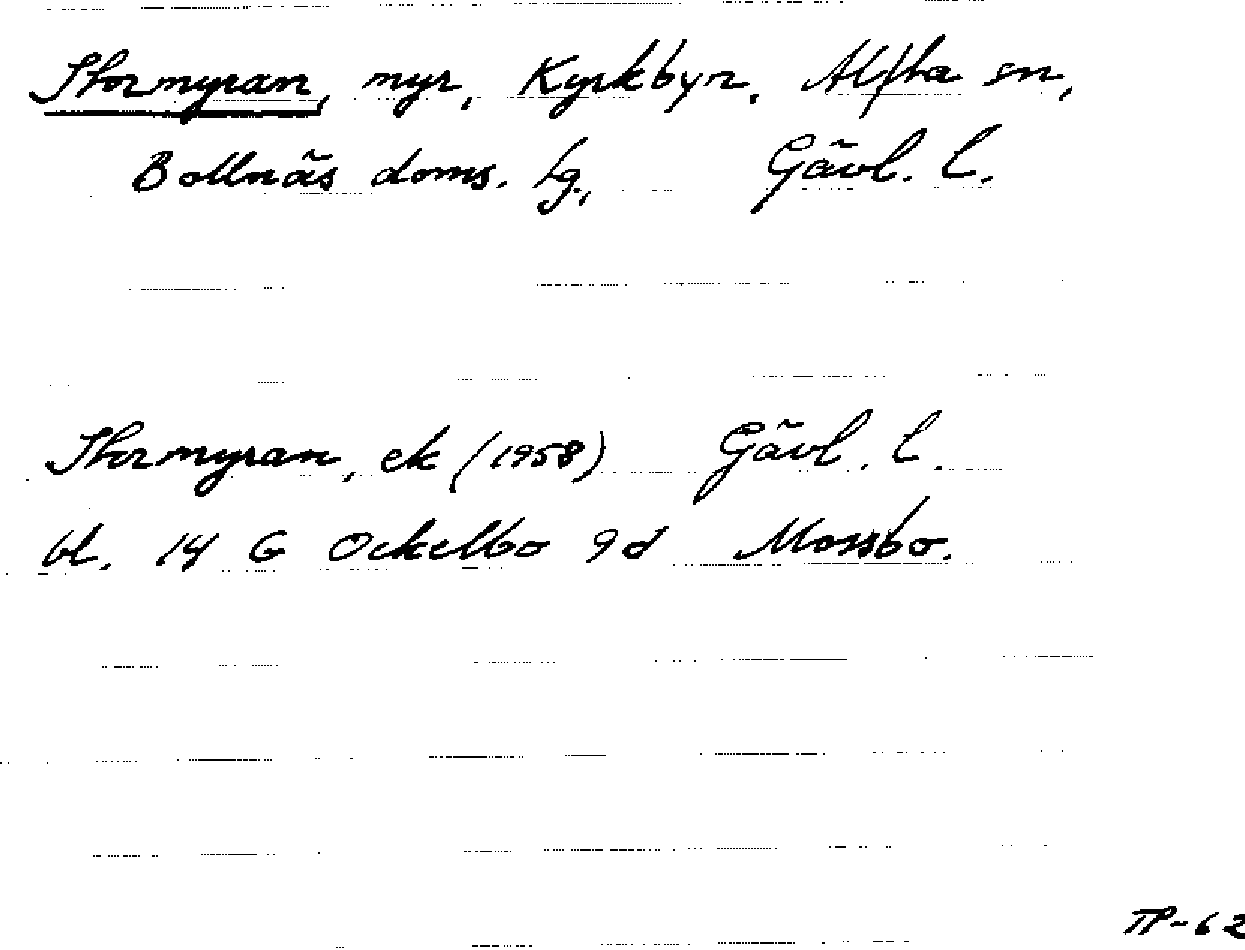 Stormyran, myr, Kyrkbyn, Alfta sn,
Bollnäs doms. lg, Gävl. l.
Stormyran, ek (1958) Gävl. l.
bl. 14 G Ockelbo 9d Mossbo.
TP-62